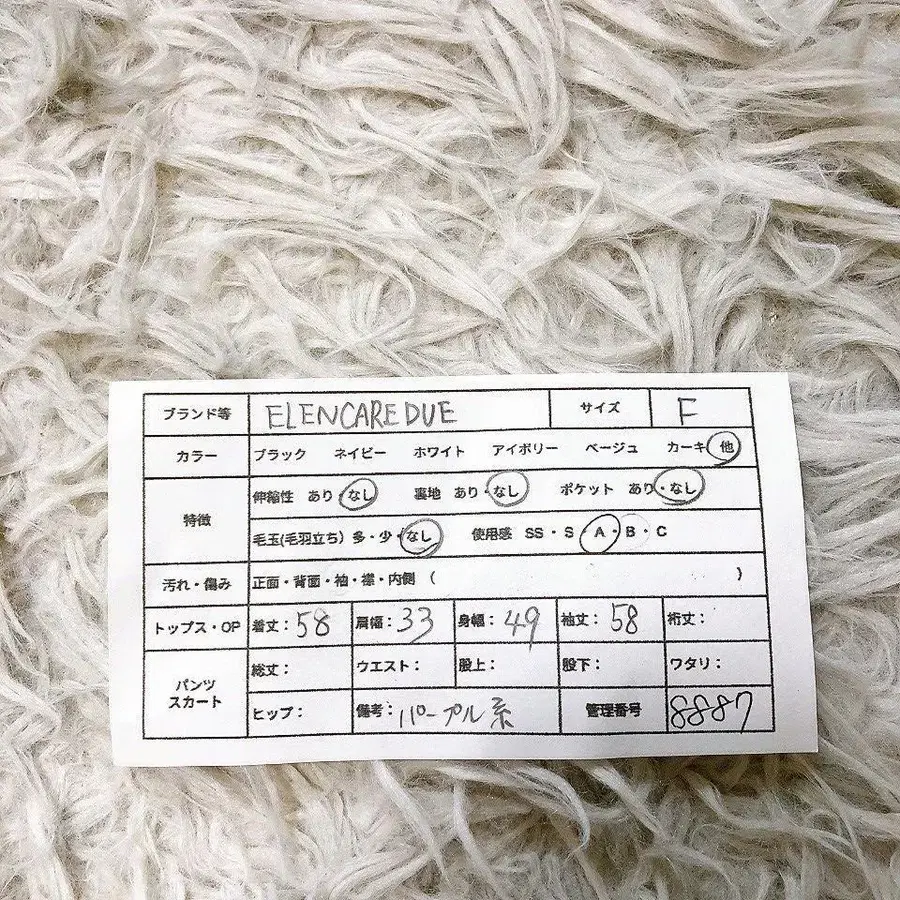 ブランド等 ELENCAREDUE サイズ F
カラー ブラック ネイビー ホワイト アイボリー ベージュ カーキ 他
特徴 伸縮性 あり・なし 裏地 あり・なし ポケット あり・なし
毛玉(毛羽立ち) 多・少・なし 使用感 SS・S・A・B・C
汚れ・傷み 正面・背面・袖・襟・内側 ( )
トップス・OP 着丈:58 肩幅:33 身幅:49 袖丈:58 裄丈:
パンツ スカート 総丈: ウエスト: 股上: 股下: ワタリ:
ヒップ: 備考:パープル系 管理番号 8887